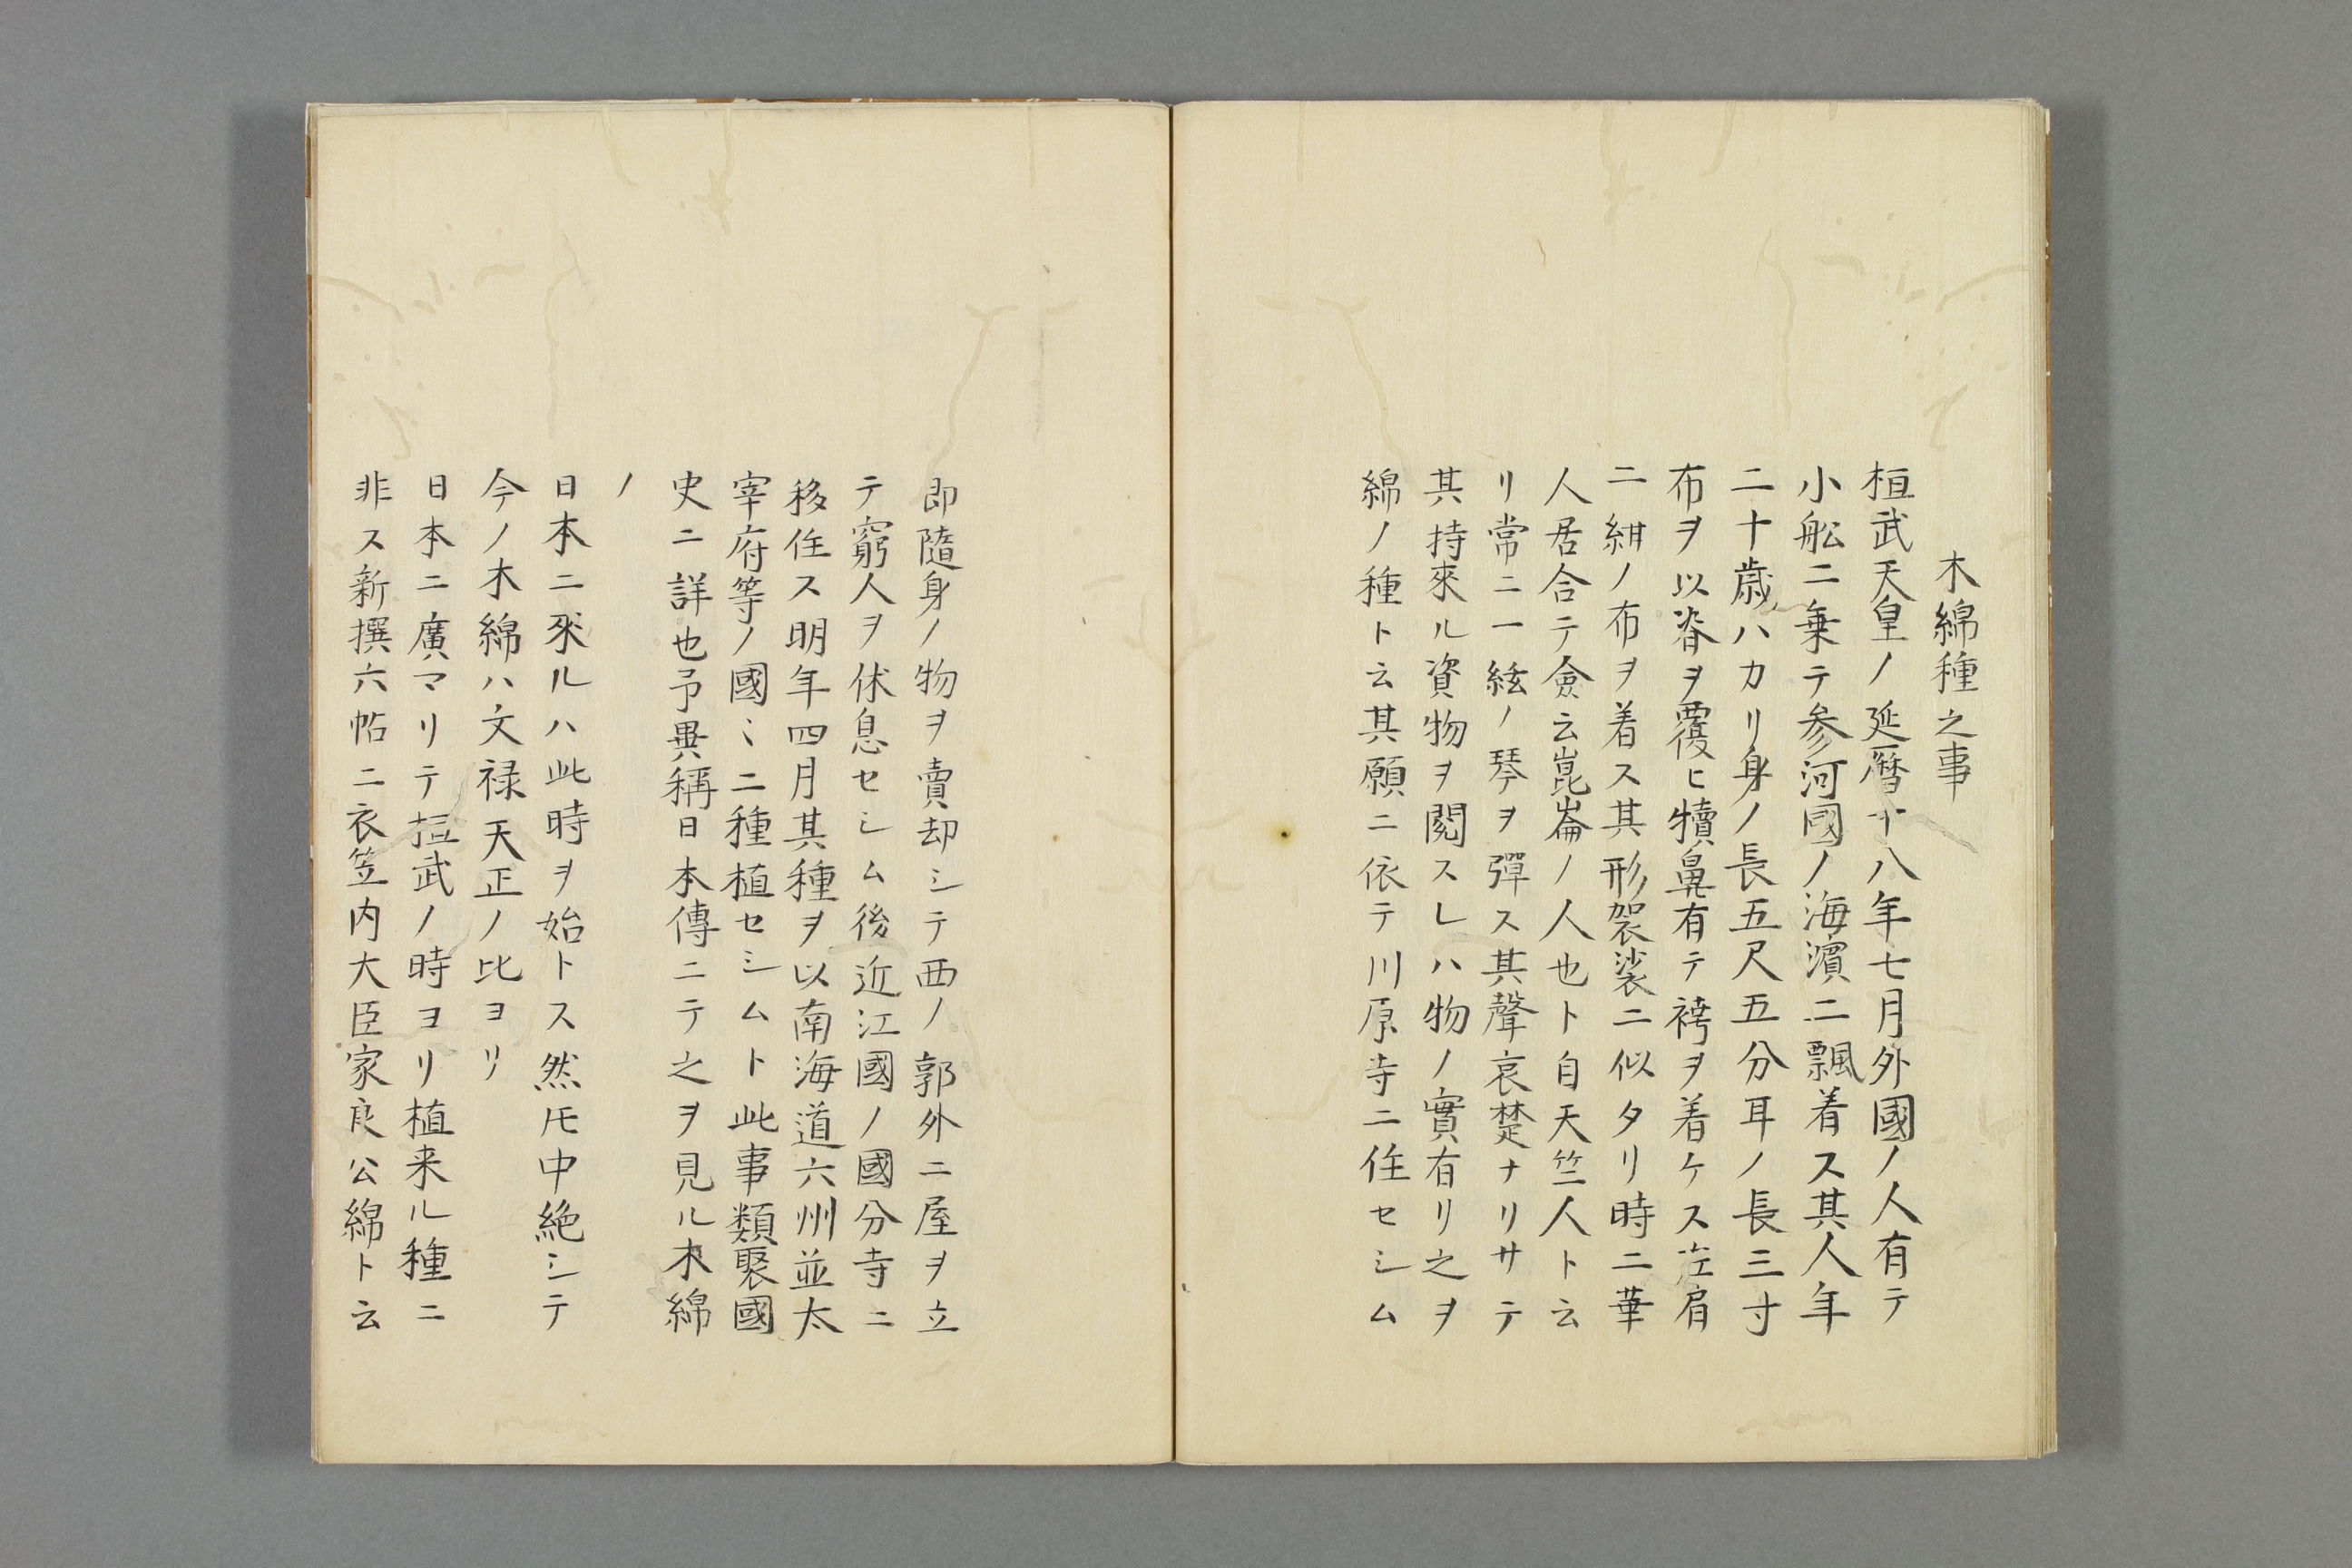 木綿種之事
桓武天皇ノ延暦十八年七月外國ノ人有テ
小舩ニ乗テ参河國ノ海濱ニ飄着ス其人年
二十歳ハカリ身ノ長五尺五分耳ノ長三寸
布ヲ以脊ヲ覆ヒ犢鼻有テ袴ヲ着ケス左肩
ニ紺ノ布ヲ着ス其形袈裟ニ似タリ時ニ華
人居合テ僉云崑崙ノ人也ト自天竺人ト云
リ常ニ一絃ノ琴ヲ彈ス其聲哀楚ナリサテ
其持來ル資物ヲ閲スレハ物ノ實有リ之ヲ
綿ノ種ト云其願ニ依テ川原寺ニ住セシム
即隨身ノ物ヲ賣却シテ西ノ郭外ニ屋ヲ立
テ窮人ヲ休息セシム後近江國ノ國分寺ニ
移住ス明年四月其種ヲ以南海道六州並太
宰府等ノ國〻ニ種植セシムト此事類聚國
史ニ詳也予異稱日本傳ニテ之ヲ見ル木綿
ノ
日本ニ來ルハ此時ヲ始トス然𪜈中絶シテ
今ノ木綿ハ文禄天正ノ比ヨリ
日本ニ廣マリテ桓武ノ時ヨリ植来ル種ニ
非ス新撰六帖ニ衣笠内大臣家良公綿ト云